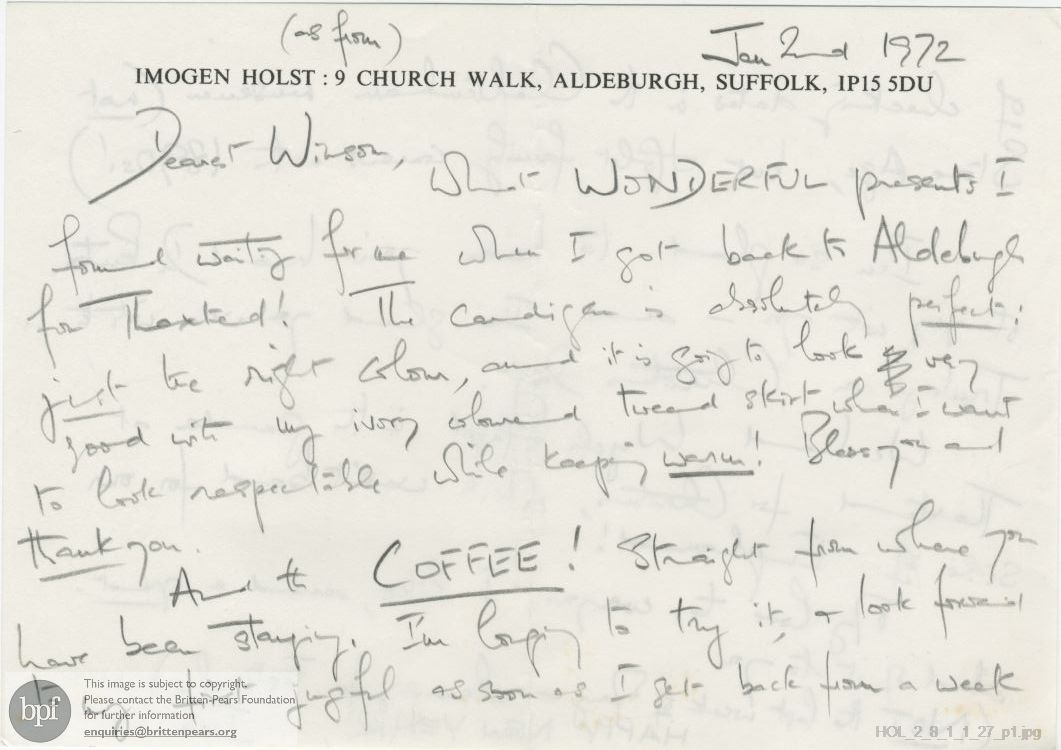 (as from)
Jan 2nd 1972
IMOGEN HOLST : 9 CHURCH WALK, ALDEBURGH, SUFFOLK, IP15 5DU
Dearest Winson,
What WONDERFUL presents I
found waiting for me when I got back to Aldeburgh
from Thaxted! The cardigan is absolutely perfect:
just the right colour, and it is going to look very
good with my ivory coloured tweed skirt when I want
to look respectable while keeping warm! Bless you and
thank you.
And the COFFEE! Straight from where you
have been staying. I'm longing to try it, & look forward
to my first jugful as soon as I get back from a week
bpf
This image is subject to copyright.
Please contact the Britten-Pears Foundation
for further information
enquiries@brittenpears.org
HOL_2_8_1_1_27_p1.jpg